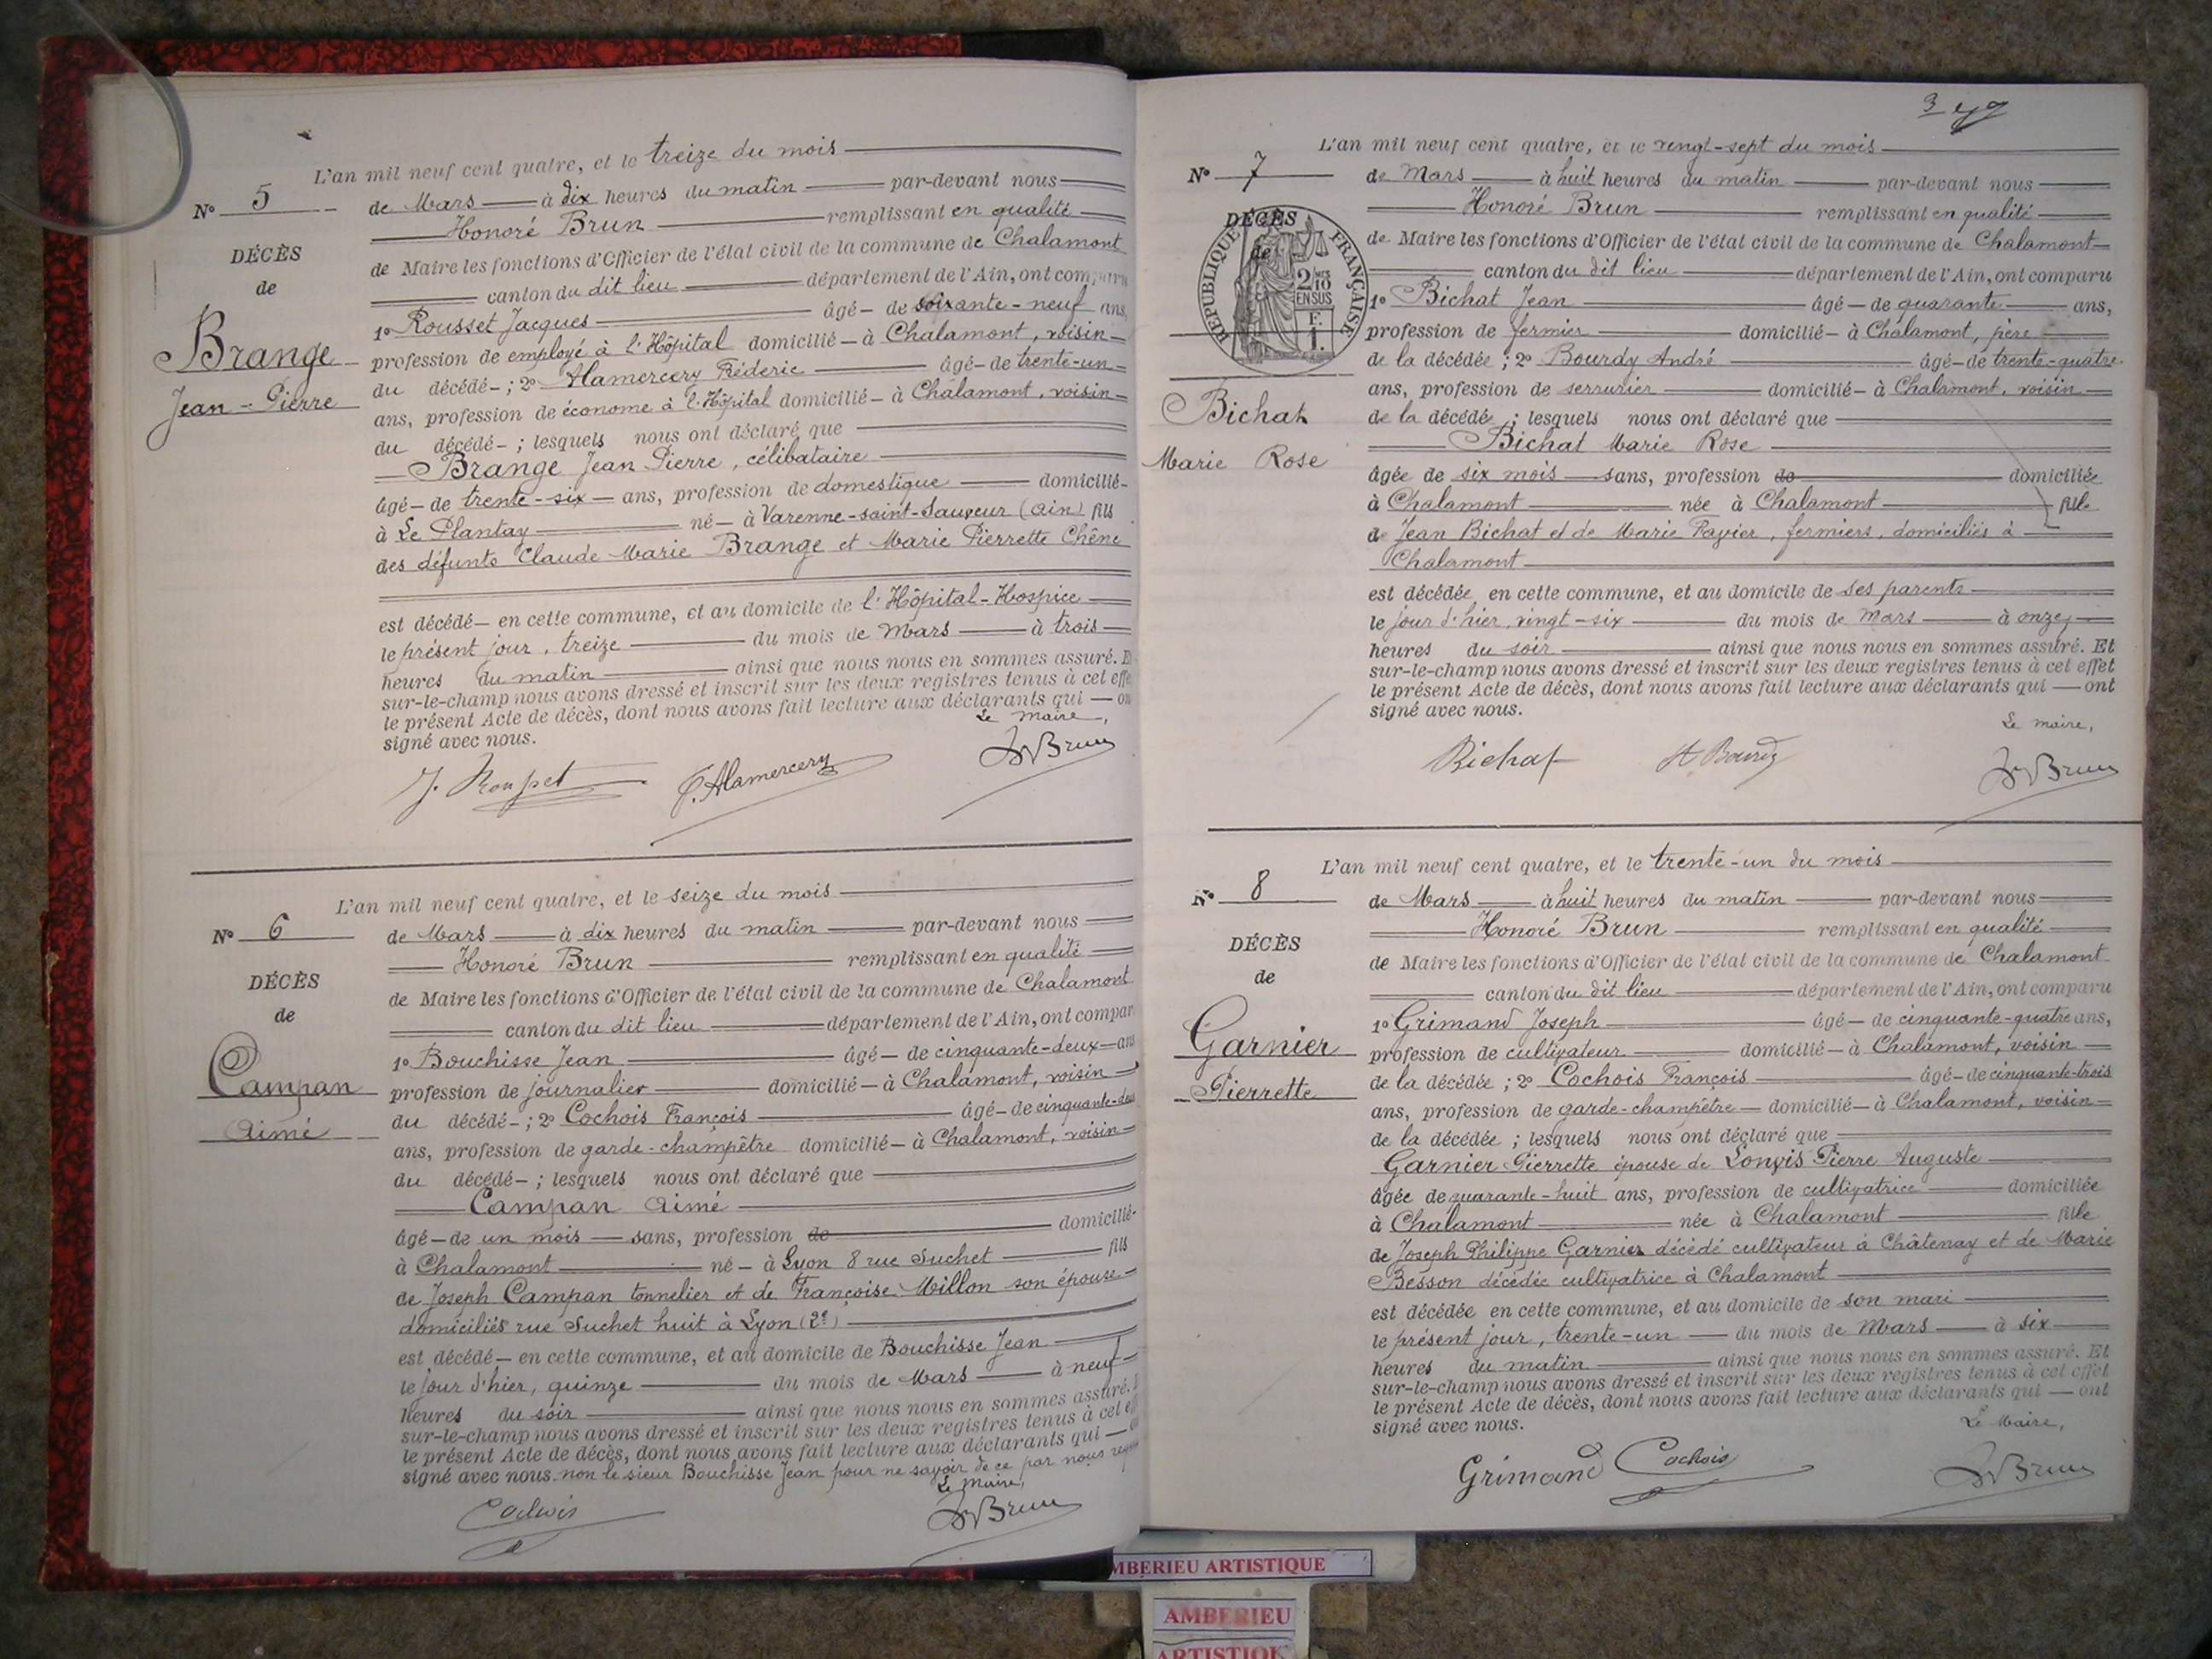 L'an mil neuf cent quatre, et le treize du mois
N° 5
de Mars à dix heures du matin par-devant nous
Honoré Brun remplissant en qualité
DÉCÈS
de Maire les fonctions d'Officier de l'état civil de la commune de Chalamont
de
canton du dit lieu département de l'Ain, ont comparu
1° Rousset Jacques âgé de soixante-neuf ans,
Brange
profession de employé à l'Hôpital domicilié à Chalamont, voisin
du décédé ; 2° Alamercery Fréderic âgé de trente-un
Jean-Pierre
ans, profession de économe à l'Hôpital domicilié à Chalamont, voisin
du décédé ; lesquels nous ont déclaré que
Brange Jean Pierre, célibataire
âgé de trente-six ans, profession de domestique domicilié
à Le Plantay né à Varenne-saint-Sauveur (Ain) fils
des défunts Claude Marie Brange et Marie Pierrette Chêne
est décédé en cette commune, et au domicile de l'Hôpital-Hospice
le présent jour, treize du mois de Mars à trois
heures du matin ainsi que nous nous en sommes assuré. Et
sur-le-champ nous avons dressé et inscrit sur les deux registres tenus à cet effe
le présent Acte de décès, dont nous avons fait lecture aux déclarants qui on
signé avec nous.
Le maire,
J. Rousset F. Alamercery HBrun
L'an mil neuf cent quatre, et le seize du mois
N° 6
de Mars à dix heures du matin par-devant nous
Honoré Brun remplissant en qualité
DÉCÈS
de Maire les fonctions d'Officier de l'état civil de la commune de Chalamont
de
canton du dit lieu département de l'Ain, ont compar
1° Bouchisse Jean âgé de cinquante-deux ans
Campan
profession de journalier domicilié à Chalamont, voisin
du décédé ; 2° Cochois François âgé de cinquante-deu
Aimé
ans, profession de garde-champêtre domicilié à Chalamont, voisin
du décédé ; lesquels nous ont déclaré que
Campan Aimé
âgé de un mois sans, profession de domicilié
à Chalamont né à Lyon 8 rue Suchet fils
de Joseph Campan tonnelier et de Françoise Millon son épouse
domiciliés rue Suchet huit à Lyon (2e)
est décédé en cette commune, et au domicile de Bouchisse Jean
le jour d'hier, quinze du mois de Mars à neuf
heures du soir ainsi que nous nous en sommes assuré.
sur-le-champ nous avons dressé et inscrit sur les deux registres tenus à cet eff
le présent Acte de décès, dont nous avons fait lecture aux déclarants qui
signé avec nous. non le sieur Bouchisse Jean pour ne savoir de ce par nous requ
Le Maire,
Cochois HBrun
3
L'an mil neuf cent quatre, et le vingt-sept du mois
N° 7
de Mars à huit heures du matin par-devant nous
Honoré Brun remplissant en qualité
DÉCÈS
de
RÉPUBLIQUE FRANÇAISE
2/10 EN SUS
F. 1.
de Maire les fonctions d'Officier de l'état civil de la commune de Chalamont
canton du dit lieu département de l'Ain, ont comparu
1° Bichat Jean âgé de quarante ans,
profession de fermier domicilié à Chalamont, père
de la décédée ; 2° Bourdy André âgé de trente-quatre
ans, profession de serrurier domicilié à Chalamont, voisin
Bichat
de la décédée ; lesquels nous ont déclaré que
Bichat Marie Rose
Marie Rose
âgée de six mois sans, profession de domiciliée
à Chalamont née à Chalamont fille
de Jean Bichat et de Marie Payier, fermiers, domiciliés à
Chalamont
est décédée en cette commune, et au domicile de ses parents
le jour d'hier, vingt-six du mois de Mars à onze
heures du soir ainsi que nous nous en sommes assuré. Et
sur-le-champ nous avons dressé et inscrit sur les deux registres tenus à cet effet
le présent Acte de décès, dont nous avons fait lecture aux déclarants qui ont
signé avec nous.
Le maire,
Bichat A Bourdy HBrun
L'an mil neuf cent quatre, et le trente-un du mois
N° 8
de Mars à huit heures du matin par-devant nous
Honoré Brun remplissant en qualité
DÉCÈS
de Maire les fonctions d'Officier de l'état civil de la commune de Chalamont
de
canton du dit lieu département de l'Ain, ont comparu
1° Grimand Joseph âgé de cinquante-quatre ans,
Garnier
profession de cultivateur domicilié à Chalamont, voisin
de la décédée ; 2° Cochois François âgé de cinquante-trois
Pierrette
ans, profession de garde-champêtre domicilié à Chalamont, voisin
de la décédée ; lesquels nous ont déclaré que
Garnier Pierrette épouse de Longis Pierre Auguste
âgée de quarante-huit ans, profession de cultivatrice domiciliée
à Chalamont née à Chalamont fille
de Joseph Philippe Garnier décédé cultivateur à Châtenay et de Marie
Besson décédée cultivatrice à Chalamont
est décédée en cette commune, et au domicile de son mari
le présent jour, trente-un du mois de Mars à six
heures du matin ainsi que nous nous en sommes assuré. Et
sur-le-champ nous avons dressé et inscrit sur les deux registres tenus à cet effet
le présent Acte de décès, dont nous avons fait lecture aux déclarants qui ont
signé avec nous.
Le Maire,
Grimand Cochois HBrun
MBERIEU ARTISTIQUE
AMBERIEU
ARTISTIQ